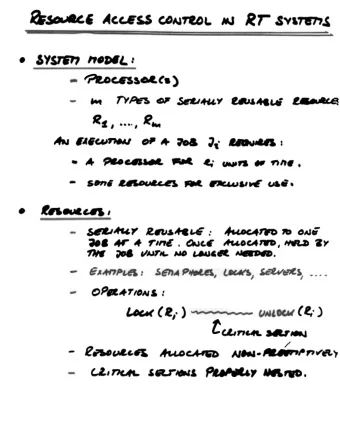 RESOURCE ACCESS CONTROL IN RT SYSTEMS
• SYSTEM MODEL:
- PROCESSOR(S)
- m TYPES OF SERIALLY REUSABLE RESOURCE
R1, ...., Rm
AN EXECUTION OF A JOB Ji REQUIRES:
- A PROCESSOR FOR ei UNITS OF TIME.
- SOME RESOURCES FOR EXCLUSIVE USE.
• RESOURCES:
- SERIALLY REUSABLE: ALLOCATED TO ONE
JOB AT A TIME. ONCE ALLOCATED, HELD BY
THE JOB UNTIL NO LONGER NEEDED.
- EXAMPLES: SEMAPHORES, LOCKS, SERVERS, ....
- OPERATIONS:
LOCK(Ri) UNLOCK(Ri)
CRITICAL SECTION
- RESOURCES ALLOCATED NON-PREEMPTIVELY
- CRITICAL SECTIONS PROPERLY NESTED.